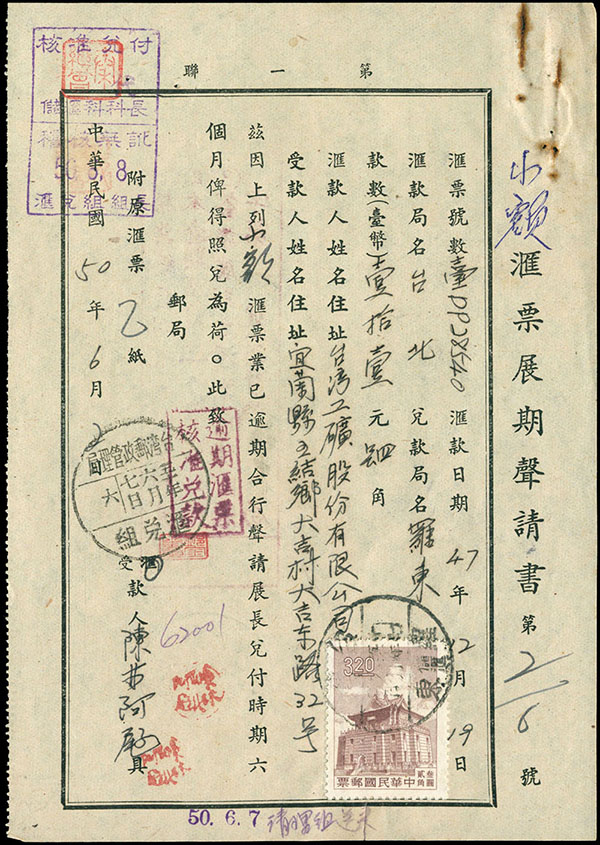 第一聯
小額滙票展期聲請書 第 2/6 號
滙票號數臺DD28540 滙款日期 47 年 12 月 19 日
滙款局名台北 兌款局名羅東
款數(臺幣)壹拾壹元 角
滙款人姓名住址台湾工礦股份有限公司
受款人姓名住址宜蘭縣五結鄉大吉村大吉东路32号
茲因上列小額滙票業已逾期合行聲請展長兌付時期六
個月俾得照兌為荷。此致
郵局
附原滙票乙紙
受款人陳 阿 具
中華民國 50 年 6 月
核准兌付
儲滙科科長
稽核無訛
50.6.8
滙兌組組長
逾期滙票
核准兌款
台灣郵政管理局
五十年六月七日
六
滙兌組
62001
羅東
3.20
中華民國郵票
叁圓貳角
50.6.7